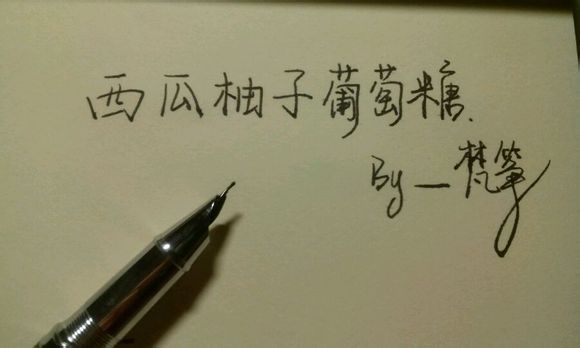 西瓜柚子葡萄糖.
By—梵筝